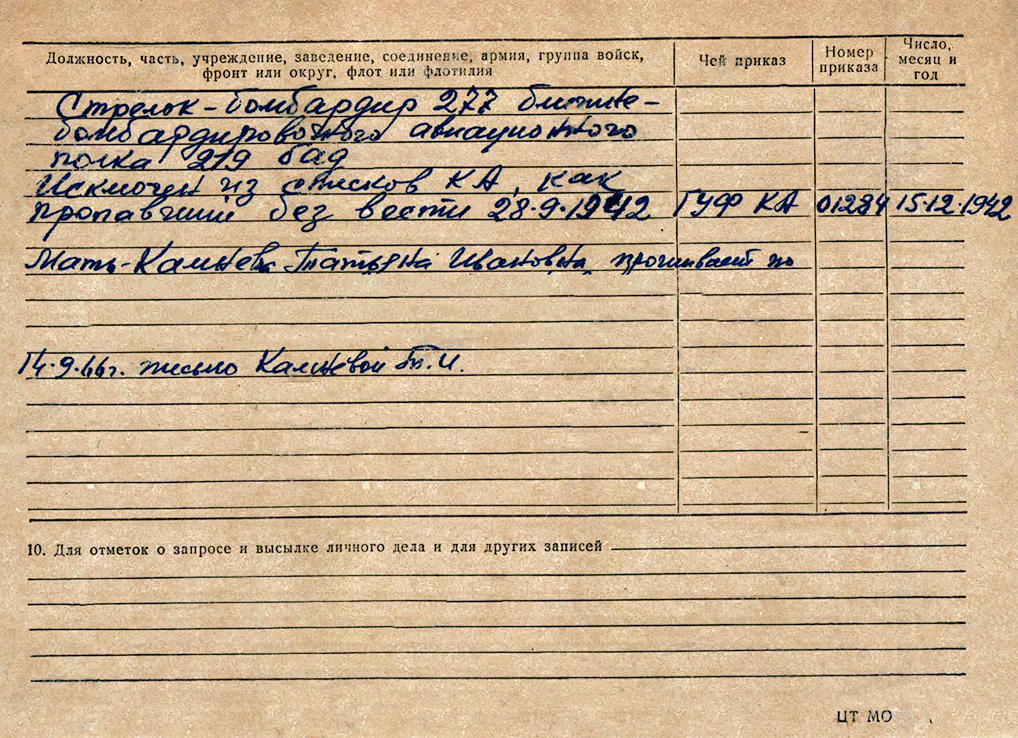 Должность, часть, учреждение, заведение, соединение, армия, группа войск,
фронт или округ, флот или флотилия
Чей приказ
Номер
приказа
Число,
месяц и
год
Стрелок-бомбардир 277 ближне-
бомбардировочного авиационного
полка 219 бад
Исключен из списков КА, как
пропавший без вести 28.9.1942 ГУФ КА 01284 15.12.1942
Мать-Камнева Татьяна Ивановна, проживает по
14.9.66г. письмо Камневой Т.И.
10. Для отметок о запросе и высылке личного дела и для других записей
ЦТ МО